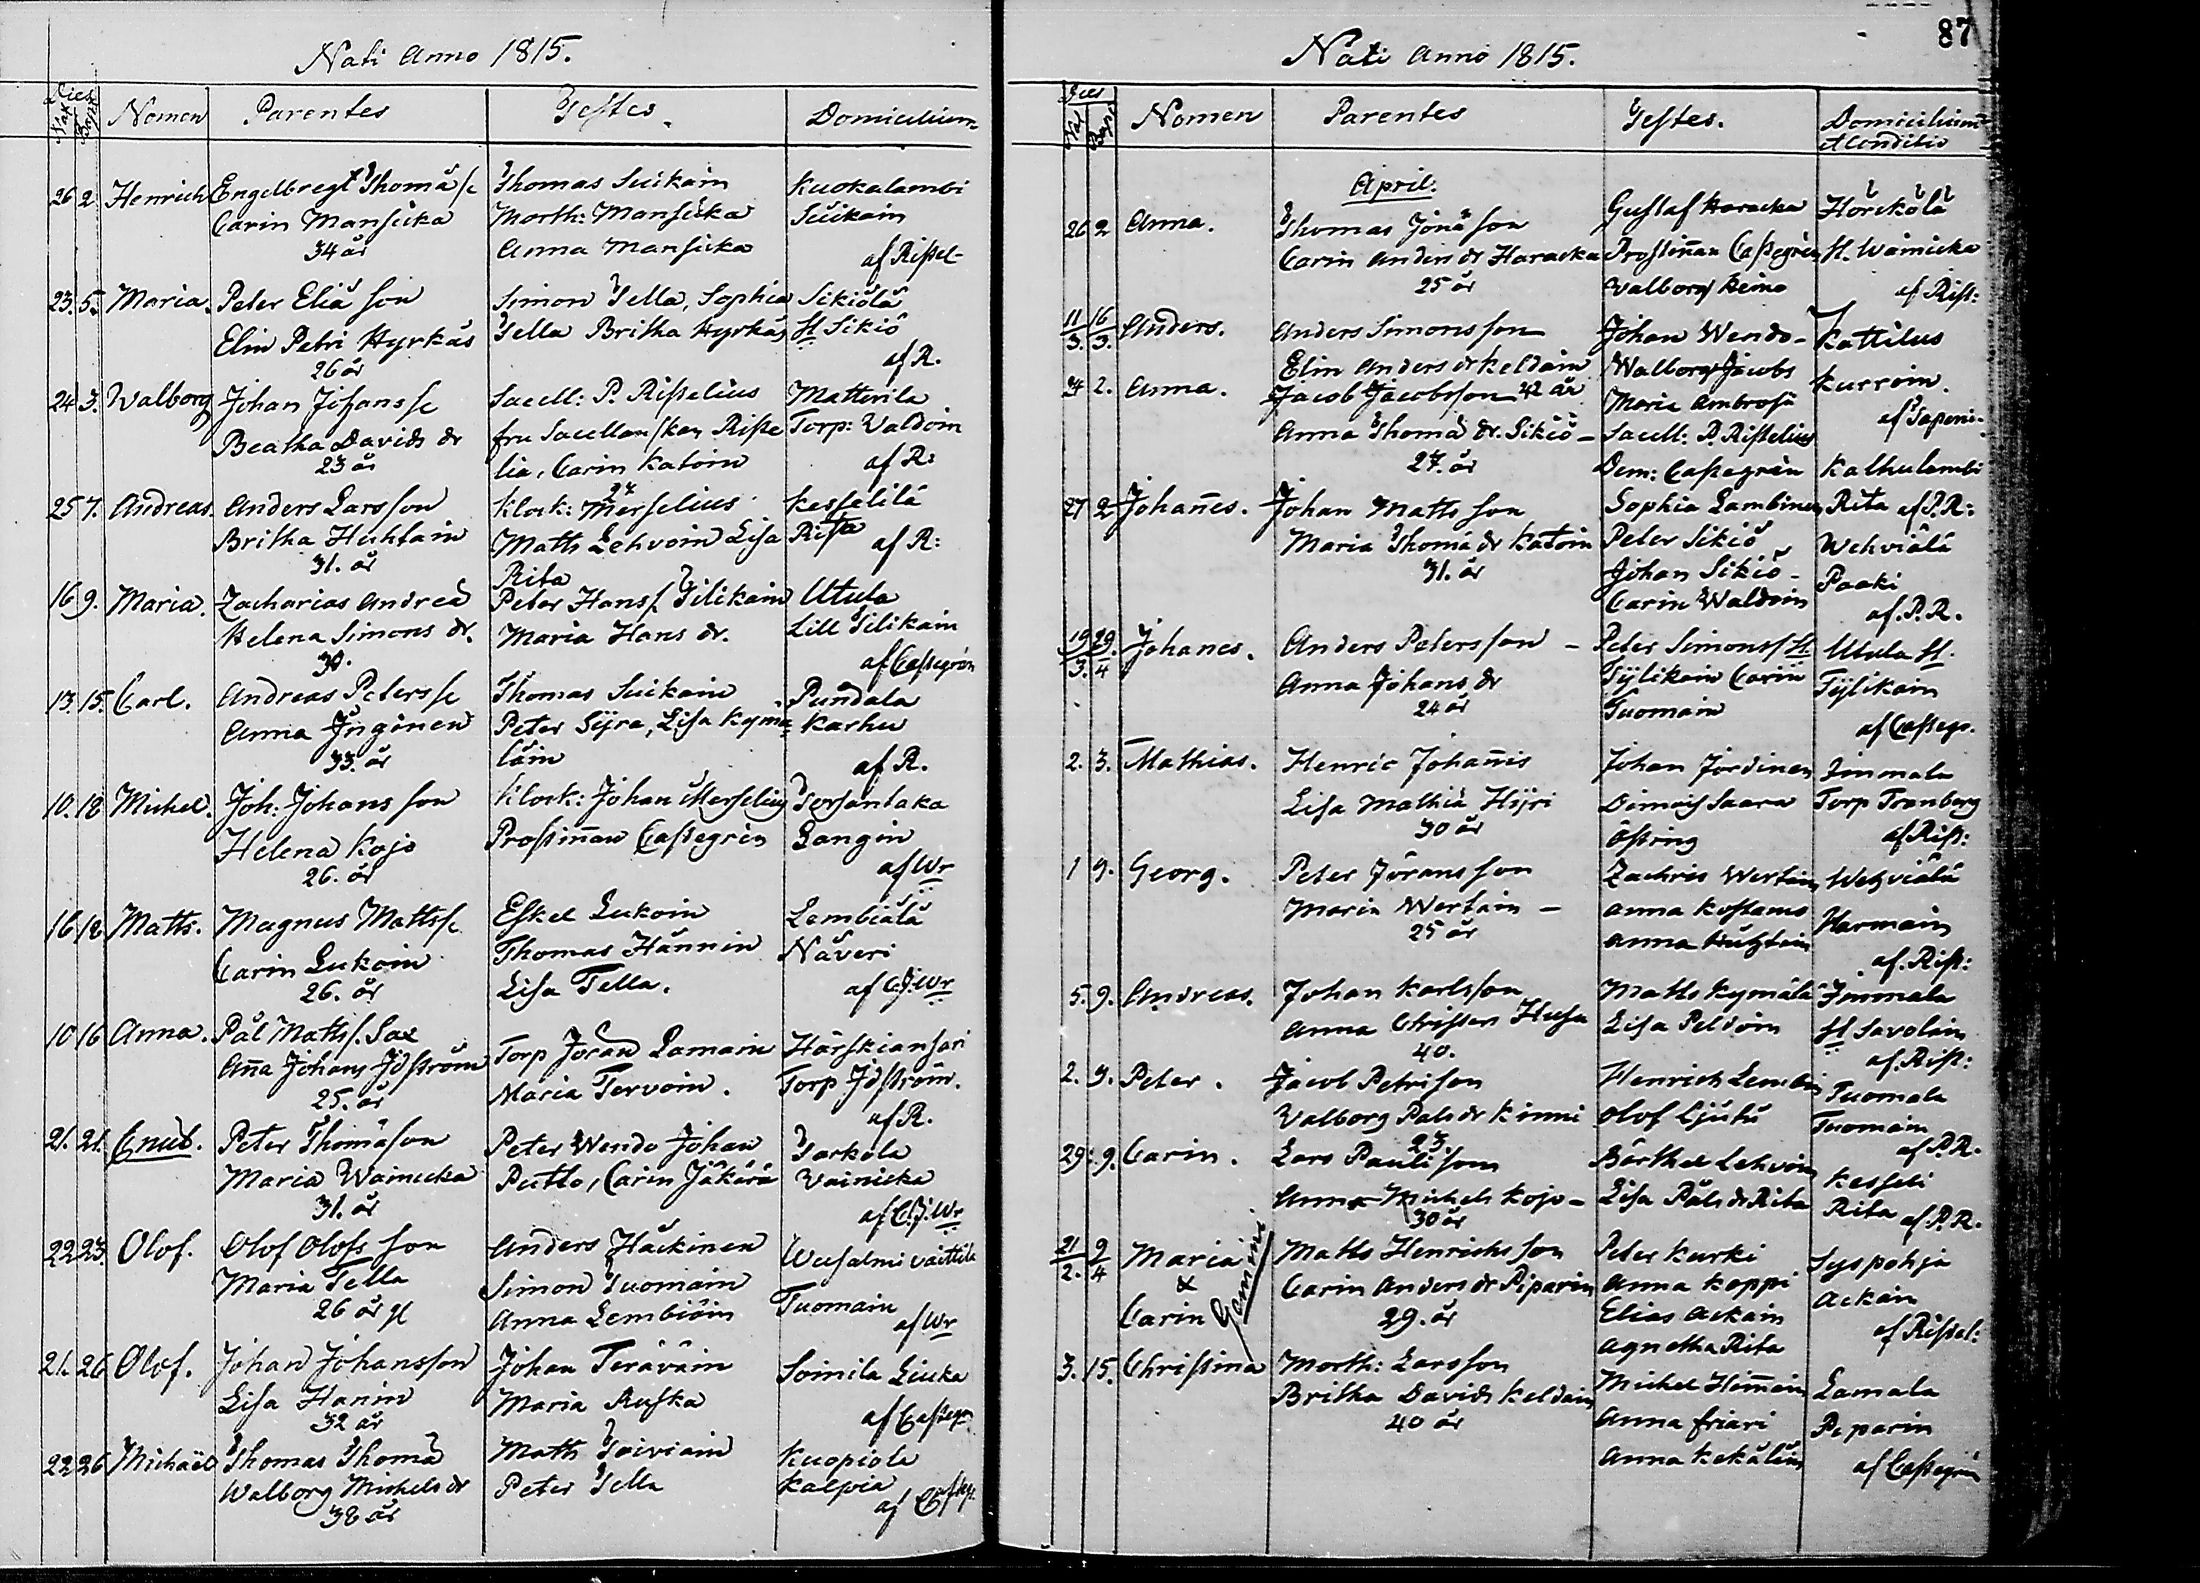 87
Nati Anno 1815.
Dies
Nat Bapt Nomen Parentes Testes. Domicilium
26 2 Henrich Engelbregt Thomä s. Thomas Suikain Kuokalambi
Carin Mansicka Morth: Mansicka Suikain
34 år Anna Mansicka af Rissel-
23. 5. Maria. Peter Eliä son Simon Tella, Sophia Sikiölä
Elin Petri Hyrkäs Tella Britha Hyrkäs H. Sikiö
26 år af R.
24 3. Walborg Johan Johans s. Sacell: P. Risselius Mattirila
Beatha Davids dr fru Sacellanskan Risse Torp: Valdoin
23 år lia, Carin Katoin af R:
25 7. Andreas. Anders Larsson Klock: Merselius Kesselilä
Britha Huhtain Matts Lehvoin Lisa Rita
31. år Rita af R:
16 9. Maria. Zacharias Andreä Peter Hans s. Tilikain Utula
Helena Simons dr. Maria Hans dr. Lill Tilikain
30. af Cassegrén
13. 15. Carl. Andreas Peters s. Thomas Suikain Pundala
Anna Ingönen Peter Syra, Lisa Kymä- Karhu
33. år läin af R.
10. 18 Michel. Joh: Johansson Klock: Johan Merselius Torsantaka
Helena Kojo Prostinnan Cassegrén Langin
26. år af Wr
16 18 Matts. Magnus Matts s. Eskel Lukoin Lembiälä
Carin Lukoin Thomas Hännin Näveri
26. år Lisa Tella. af C.J.Wr
10 16 Anna. Pål Matts s. Sac Torp Joran Lamain Härskiansari
Aña Johans Idström Maria Tervoin. Torp Idström.
25. år af R.
21. 21. Cnut. Peter Thomäson Peter Wendo Johan Tarkola
Maria Wainicka Putto, Carin Jäkärä Vainicka
31. år af C.J.Wr
22 23. Olof. Olof Olofs son Anders Häckinen Wusalmi Vaittila
Maria Tella Simon Tuomain Tuomain
26 år gl Anna Lembiöin af Wr
21. 26 Olof. Johan Johansson Johan Teräväin Soimila Liuka
Lisa Hanin Maria Ruska
32 år af Cassegr.
22 26 Michaël Thomas Thomä Matts Toiviain Kuopiola
Walborg Michels dr Peter Tella Kalpia
38 år af Cassegr.
Nati Anno 1815.
Dies
Nat Bapt Nomen Parentes Testes. Domicilium
et Conditio
April.
26 2 Anna. Thomas Jonäson Gustaf Haracka Hörckölä
Carin Anders dr Haracka Prostinnan Cassegrén H. Wäinicka
25 år Walborg Heino af Riss:
11/3. 16/3. Anders. Anders Simonsson Johan Wendo- Kattilus
Elin Anders dr Keldain Walborg Jacobs Kurroin.
42 år Maria Ambrosii af Taponi-
24 2. Anna. Jacob Jacobsson Sacell: P. Risselius
Anna Thomä dr. Sikiö- Dem: Cassegrén Kalhulambi
27. år
27 2 Johañes. Johan Mattsson Sophia Lambinen Rita af P.R:
Maria Thomä dr Katoin Peter Sikiö Wehviälä
31. år Johan Sikiö- Paaki
Carin Waldoin af. P.R.
19/3. 29/4 Johanes. Anders Petersson - Peter Simons s. H. Utula H.
Anna Johans dr Tijlikain Carin Tijlikain
24 år Tuomain af Cassegr.
2. 3. Mathias. Henric Johañis Johan Jordinen Immala
Lisa Mathiä Hijri Saara Torp Tranberg
30 år Östring af Riss:
1 9. Georg. Peter Jöransson Zachris Wertain Wehviälä
Maria Wertain - Anna Kostamo Harmain
25 år Anna Huhtain af. Riss:
5. 9. Andreas. Johan Karlsson Matts Kymälä Immala
Anna Christers Husu Lisa Peldoin H Savolain
40. af. Riss:
2. 9. Peter. Jacob Petrison Henrich Lembin Tuomala
Valborg Pals dr Kinni Olof Ljutu Tuomain
23. af P.R.
29: 9. Carin. Lars Paulisson Bärthel Lehvoin Kesseli
Anna Michels Kojo- Lisa Påls dr Rita Rita
30 år af P.R.
21/2. 9/4 Maria Matts Henrichsson Peter Kurki Syspohja
& Carin Anders dr Piparin Anna Koppi Ackain
Carin Gemini 29. år Elias Ackain af Rissel:
Agnetha Rita
3. 15. Christina Morth: Larsson Michel Himain Lamala
Britha Davids Keldain Anna Friari Piparin
40 år Anna Kekäläin af Cassegrén